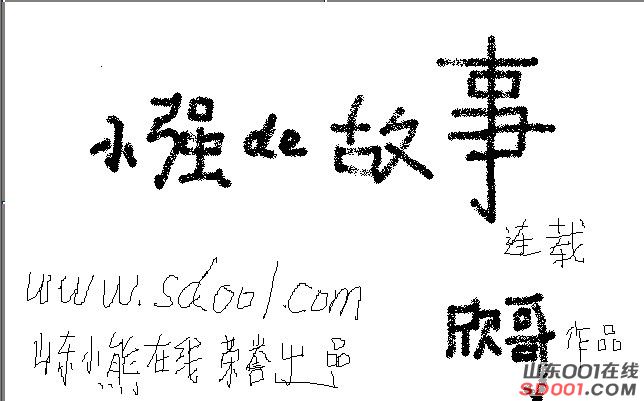 小强de故事
连载
www.sdool.com
山东小熊在线荣誉出品
欣哥作品
山东001在线
SD001.COM